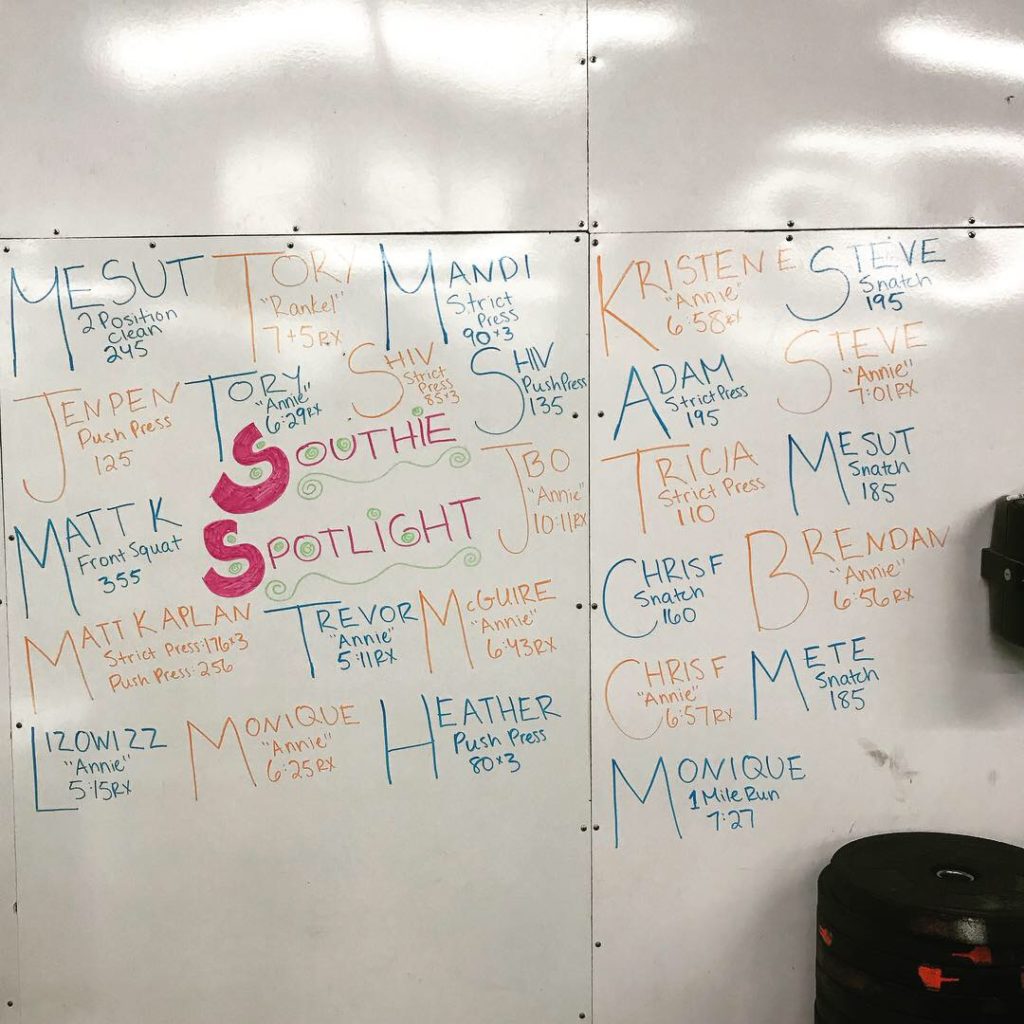 MESUT
2 Position
Clean
245
TORY
"Rankel"
7+5RX
MANDI
Strict
Press
90x3
JENPEN
Push Press
125
TORY
"Annie"
6:29RX
SHIV
Strict
Press
85x3
SHIV
Push Press
135
SOUTHIE
SPOTLIGHT
JBO
"Annie"
10:11RX
MATT K
Front Squat
355
MATT KAPLAN
Strict Press:176x3
Push Press:256
TREVOR
"Annie"
5:11RX
McGUIRE
"Annie"
6:43RX
LIZOWIZZ
"Annie"
5:15RX
MONIQUE
"Annie"
6:25RX
HEATHER
Push Press
80x3
KRISTEN E
"Annie"
6:58RX
STEVE
Snatch
195
ADAM
Strict Press
195
STEVE
"Annie"
7:01RX
TRICIA
Strict Press
110
MESUT
Snatch
185
CHRIS F
Snatch
160
BRENDAN
"Annie"
6:56RX
CHRIS F
"Annie"
6:57RX
METE
Snatch
185
MONIQUE
1 Mile Run
7:27